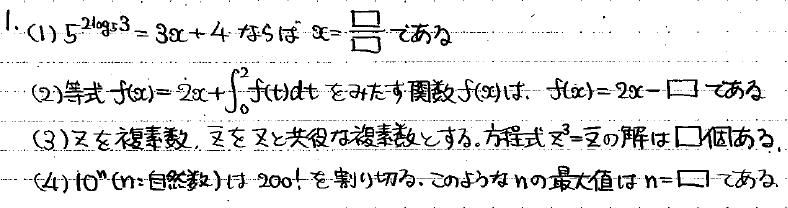 1. (1) 5^{2log_5 3} = 3x+4 ならば x = □/□ である
(2) 等式 f(x) = 2x+∫_0^2 f(t)dt をみたす関数f(x)は、f(x) = 2x-□ である
(3) zを複素数、z̄をzと共役な複素数とする。方程式 z^3=z̄の解は□個ある。
(4) 10^n (n:自然数)は 200! を割り切る。このようなnの最大値は n=□ である。